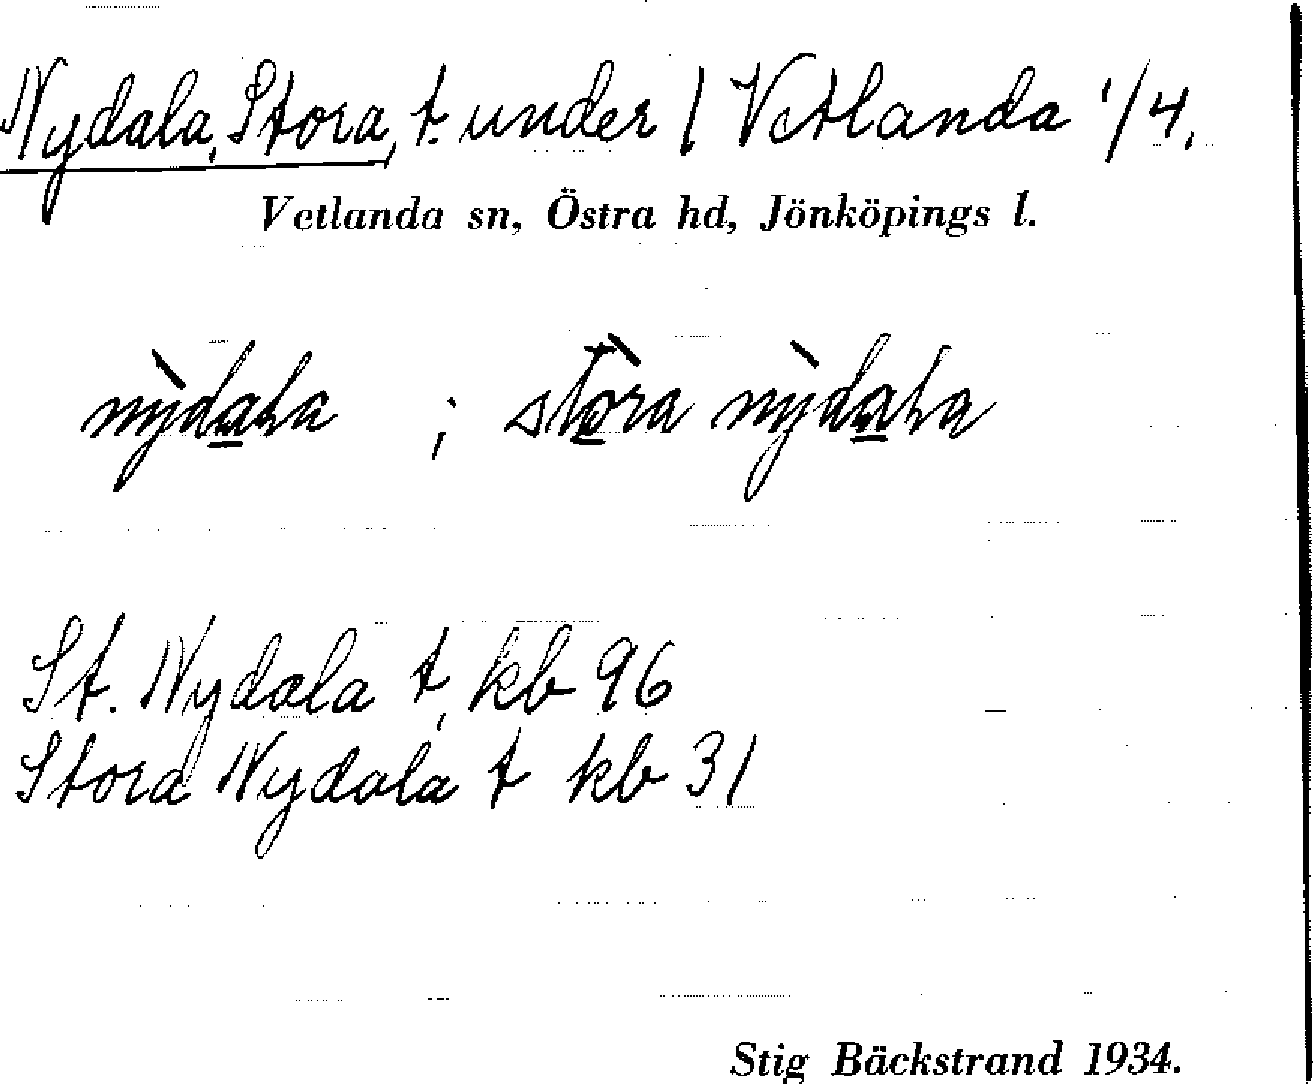 Nydala, Stora, t. under / Vetlanda 1/4.
Vetlanda sn, Östra hd, Jönköpings l.
nỳdala ; stòra nỳdala
St. Nydala t, kb 96
Stora Nydala t kb 31
Stig Bäckstrand 1934.